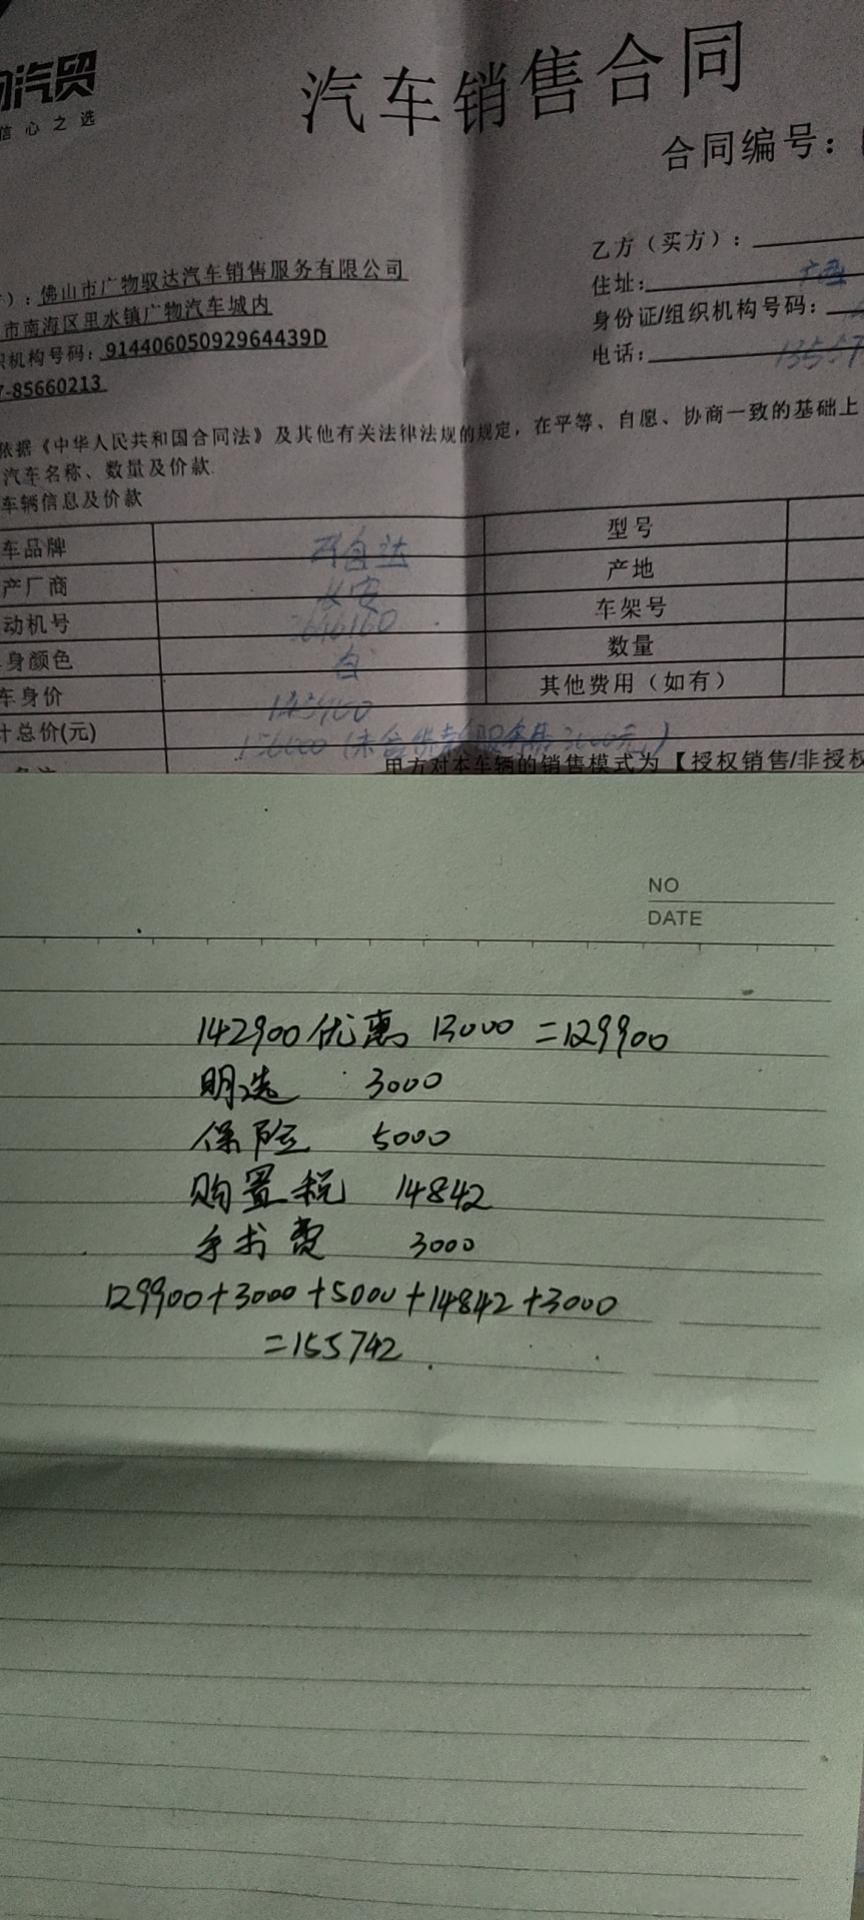 汽贸
信心之选
汽车销售合同
合同编号：
）：佛山市广物驭达汽车销售服务有限公司
市南海区里水镇广物汽车城内
织机构号码：91440605092964439D
7-85660213
乙方（买方）：
住址：广西
身份证/组织机构号码：
电话：
依据《中华人民共和国合同法》及其他有关法律法规的规定，在平等、自愿、协商一致的基础上
汽车名称、数量及价款
车辆信息及价款
车品牌 型号
产厂商 长安 产地
动机号 车架号
身颜色 白 数量
车身价 其他费用（如有）
计总价(元) 156000（未含贷款服务费3000元）
备注 甲方对本车辆的销售模式为【授权销售/非授权
NO
DATE
142900优惠 13000 =129900
明选 3000
保险 5000
购置税 14842
手术费 3000
129900+3000+5000+14842+3000
=155742